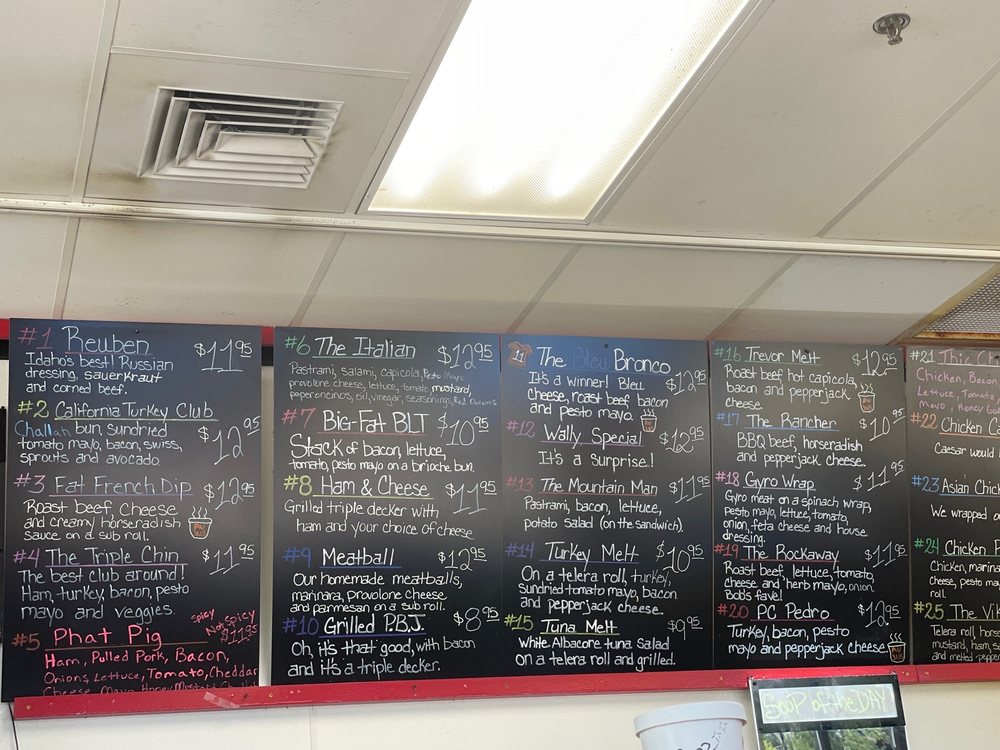 #1 Reuben $11.95
Idaho's best! Russian
dressing, sauerkraut
and corned beef.
#2 California Turkey Club
Challah bun, sundried $12.95
tomato mayo, bacon, swiss,
sprouts and avocado.
#3 Fat French Dip $12.95
Roast beef, cheese
and creamy horseradish
sauce on a sub roll.
#4 The Triple Chin $11.95
The best club around!
Ham, turkey, bacon, pesto
mayo and veggies.
#5 Phat Pig spicy Not spicy $11.95
Ham, Pulled Pork, Bacon,
Onions, Lettuce, Tomato, Cheddar
Cheese, Mayo, Honey
#6 The Italian $12.95
Pastrami, salami, capicola, Pesto Mayo
provolone cheese, lettuce, tomato, mustard,
peperoncinos, oil, vinegar, seasonings, Red Onions
#7 Big-Fat BLT $10.95
Stack of bacon, lettuce,
tomato, pesto mayo on a brioche bun.
#8 Ham & Cheese $11.95
Grilled triple decker with
ham and your choice of cheese
#9 Meatball $12.95
Our homemade meatballs,
marinara, provolone cheese
and parmesan on a sub roll.
#10 Grilled P.B.J. $8.95
Oh, it's that good, with bacon
and it's a triple decker.
11 The Bleu Bronco
It's a winner! Bleu $12.95
cheese, roast beef, bacon
and pesto mayo.
#12 Wally Special $12.95
It's a surprise!
#13 The Mountain Man $11.95
Pastrami, bacon, lettuce,
potato salad (on the sandwich).
#14 Turkey Melt $10.95
On a telera roll, turkey,
sundried tomato mayo, bacon
and pepperjack cheese.
#15 Tuna Melt $9.95
White Albacore tuna salad
on a telera roll and grilled.
#16 Trevor Melt $12.95
Roast beef, hot capicola,
bacon and pepperjack
cheese.
#17 The Rancher $10.95
BBQ beef, horseradish
and pepperjack cheese.
#18 Gyro Wrap $11.95
Gyro meat on a spinach wrap,
pesto mayo, lettuce, tomato,
onion, feta cheese and house
dressing.
#19 The Rockaway $11.95
Roast beef, lettuce, tomato,
cheese and herb mayo, onion.
Bob's fave!
#20 PC Pedro $12.95
Turkey, bacon, pesto
mayo and pepperjack cheese
#21 Thic Ch
Chicken, Bacon
Lettuce, Tomato,
Mayo, Honey
#22 Chicken Ca
Caesar would
#23 Asian Chick
We wrapped o
#24 Chicken P
Chicken, marina
cheese, pesto ma
#25 The Vik
Telera roll, horse
mustard, ham, sa
and melted pepper
Soup of the DAY